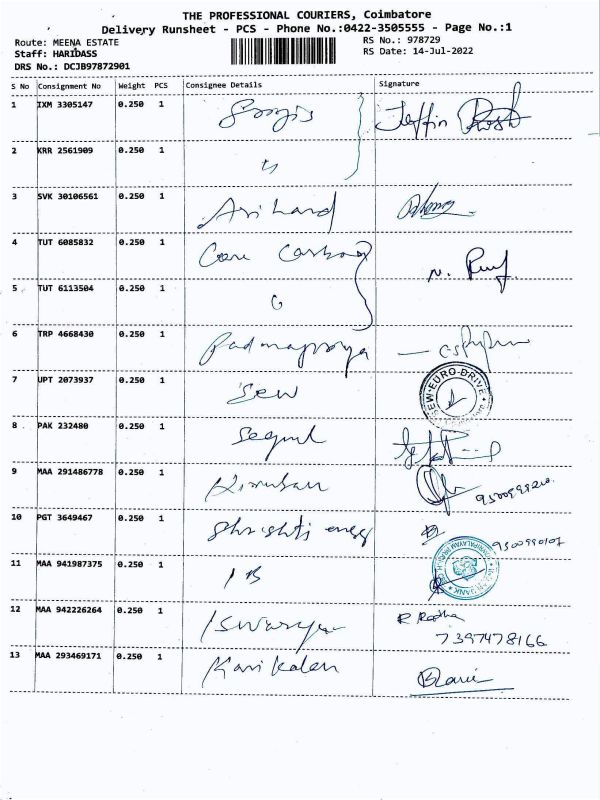 THE PROFESSIONAL COURIERS, Coimbatore
Delivery Runsheet - PCS - Phone No.:0422-3505555 - Page No.:1
Route: MEENA ESTATE
RS No.: 978729
Staff: HARIDASS
RS Date: 14-Jul-2022
DRS No.: DCJB97872901
S No Consignment No Weight PCS Consignee Details Signature
1 IXM 3305147 0.250 1 Jeffin
2 KRR 2561909 0.250 1
3 SVK 30106561 0.250 1 Arihand
4 TUT 6085832 0.250 1
5 TUT 6113504 0.250 1
6 TRP 4668430 0.250 1 Padmapriya
7 UPT 2073937 0.250 1 Sew SEW-EURO-DRIVE
8 PAK 232480 0.250 1
9 MAA 291486778 0.250 1
10 PGT 3649467 0.250 1 Shrishti energy
11 MAA 941987375 0.250 1 IB
12 MAA 942226264 0.250 1 Iswarya R Radha
7397478166
13 MAA 293469171 0.250 1 Karikalan